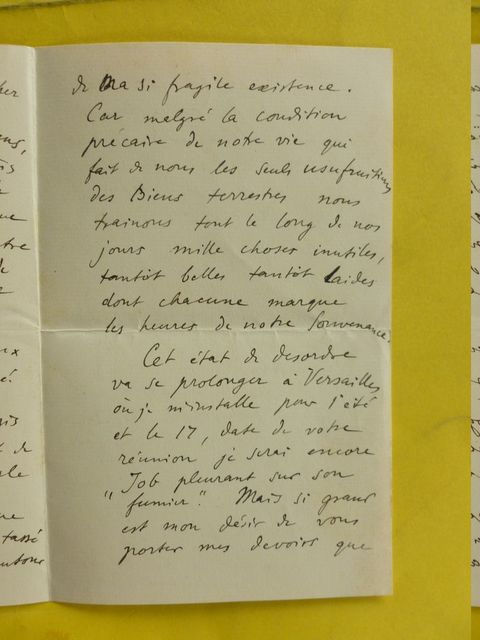 de ma si fragile existence.
Car malgré la condition
précaire de notre vie qui
fait de nous les seuls usufruitiers
des Biens terrestres nous
trainons tout le long de nos
jours mille choses inutiles,
tantôt belles tantôt laides
dont chacune marque
les heures de notre Souvenance.
Cet état de desordre
va se prolonger à Versailles
où je m'installe pour l'été
et le 17, date de votre
réunion je serai encore
"Job pleurant sur son
fumier". Mais si grand
est mon désir de vous
porter mes devoirs que